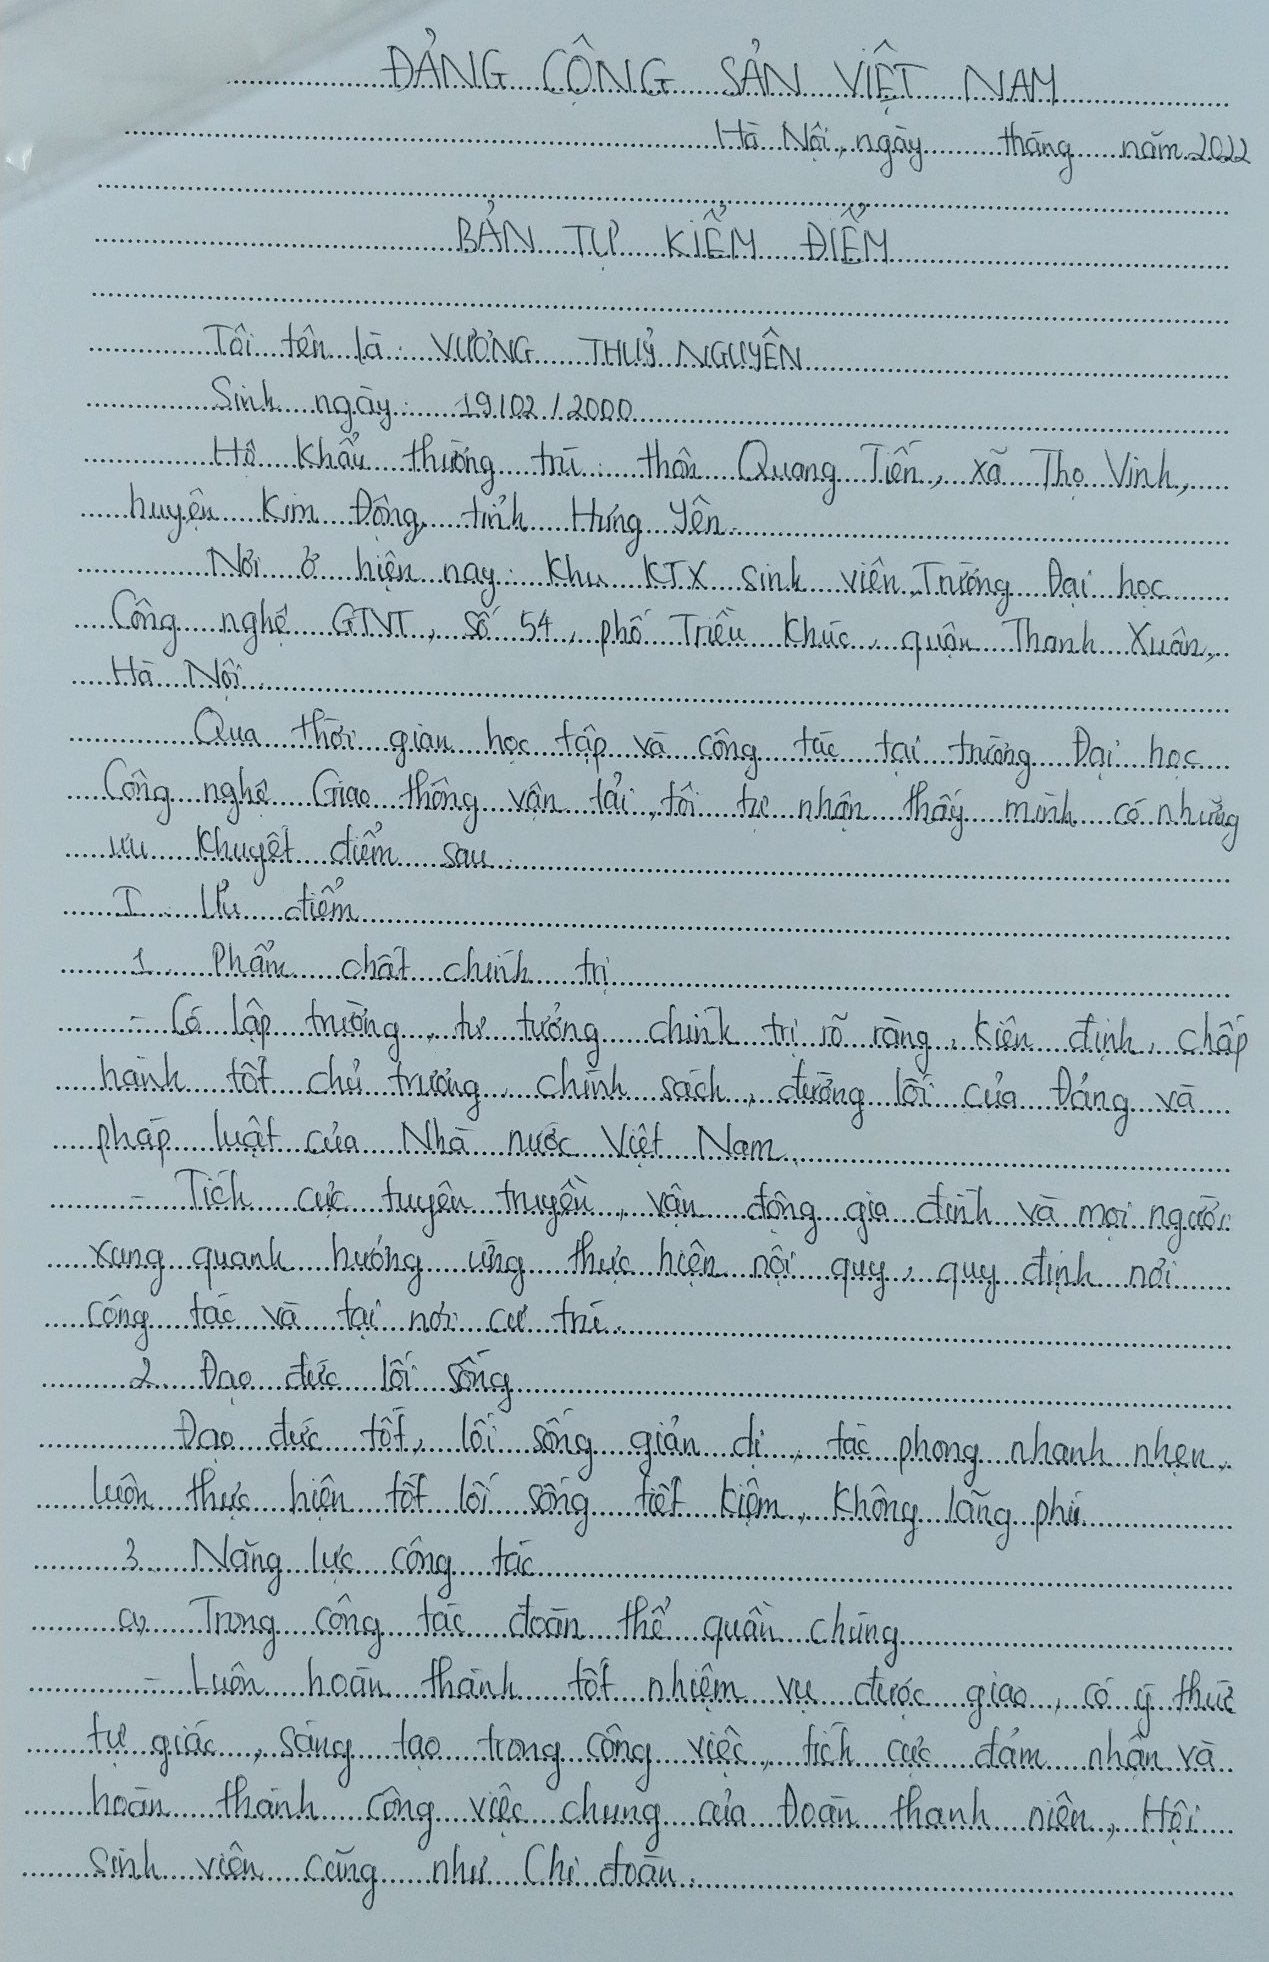 ĐẢNG CỘNG SẢN VIỆT NAM
Hà Nội, ngày tháng năm 2022
BẢN TỰ KIỂM ĐIỂM
Tôi tên là: VƯƠNG THUỶ NGUYÊN
Sinh ngày: 19/02/2000
Hộ khẩu thường trú: thôn Quang Tiến, xã Thọ Vinh,
huyện Kim Động, tỉnh Hưng Yên.
Nơi ở hiện nay: Khu KTX sinh viên Trường Đại học
Công nghệ GTVT, số 54, phố Triều Khúc, quận Thanh Xuân,
Hà Nội.
Qua thời gian học tập và công tác tại trường Đại học
Công nghệ Giao thông vận tải, tôi tự nhận thấy mình có những
ưu khuyết điểm sau:
I. Ưu điểm
1. Phẩm chất chính trị
- Có lập trường, tư tưởng chính trị rõ ràng, kiên định, chấp
hành tốt chủ trương, chính sách, đường lối của Đảng và
pháp luật của Nhà nước Việt Nam.
- Tích cực tuyên truyền, vận động gia đình và mọi người
xung quanh hưởng ứng thực hiện nội quy, quy định nơi
công tác và tại nơi cư trú.
2. Đạo đức lối sống
Đạo đức tốt, lối sống giản dị, tác phong nhanh nhẹn,
luôn thực hiện tốt lối sống tiết kiệm, không lãng phí.
3. Năng lực công tác
a, Trong công tác đoàn thể quần chúng
- Luôn hoàn thành tốt nhiệm vụ được giao, có ý thức
tự giác, sáng tạo trong công việc, tích cực đảm nhận và
hoàn thành công việc chung của Đoàn thanh niên, Hội
Sinh viên cũng như Chi đoàn.